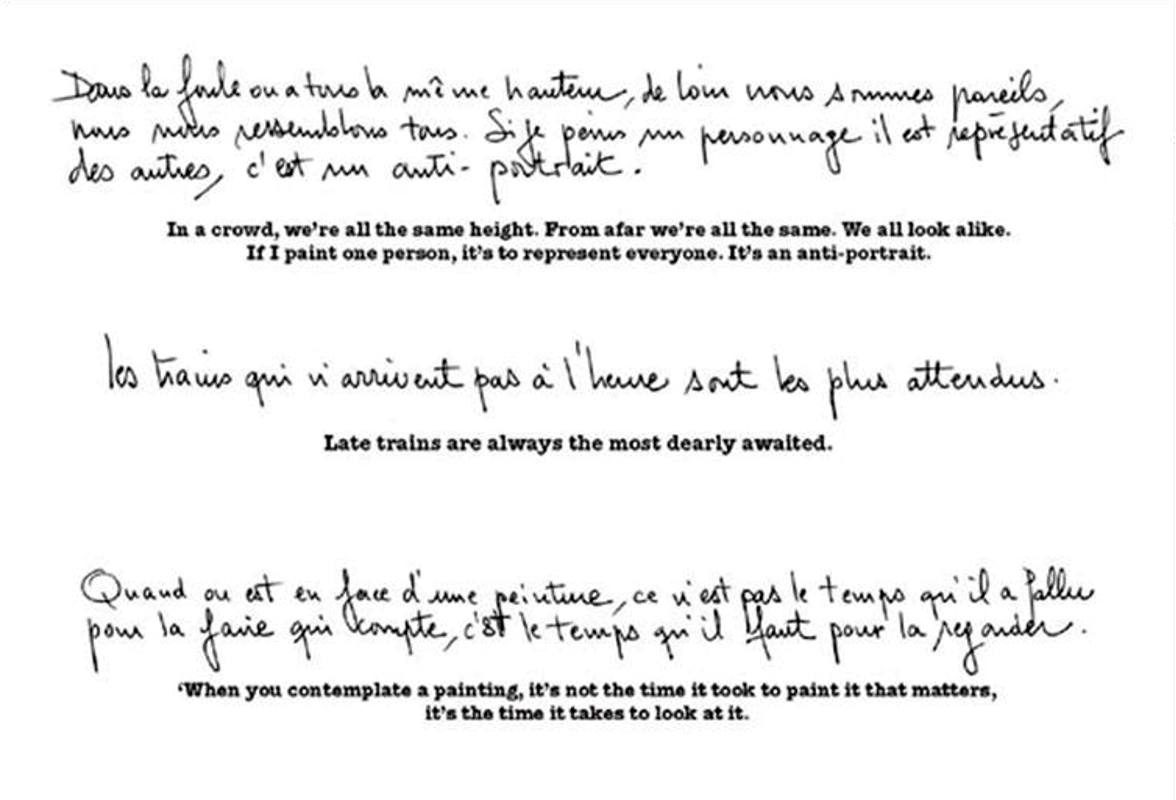 Dans la foule on a tous la même hauteur, de loin nous sommes pareils,
nous nous ressemblons tous. Si je peins un personnage il est représentatif
des autres, c'est un anti-portrait.
In a crowd, we're all the same height. From afar we're all the same. We all look alike.
If I paint one person, it's to represent everyone. It's an anti-portrait.
les trains qui n'arrivent pas à l'heure sont les plus attendus.
Late trains are always the most dearly awaited.
Quand on est en face d'une peinture, ce n'est pas le temps qu'il a fallu
pour la faire qui compte, c'est le temps qu'il faut pour la regarder.
‘When you contemplate a painting, it's not the time it took to paint it that matters,
it's the time it takes to look at it.